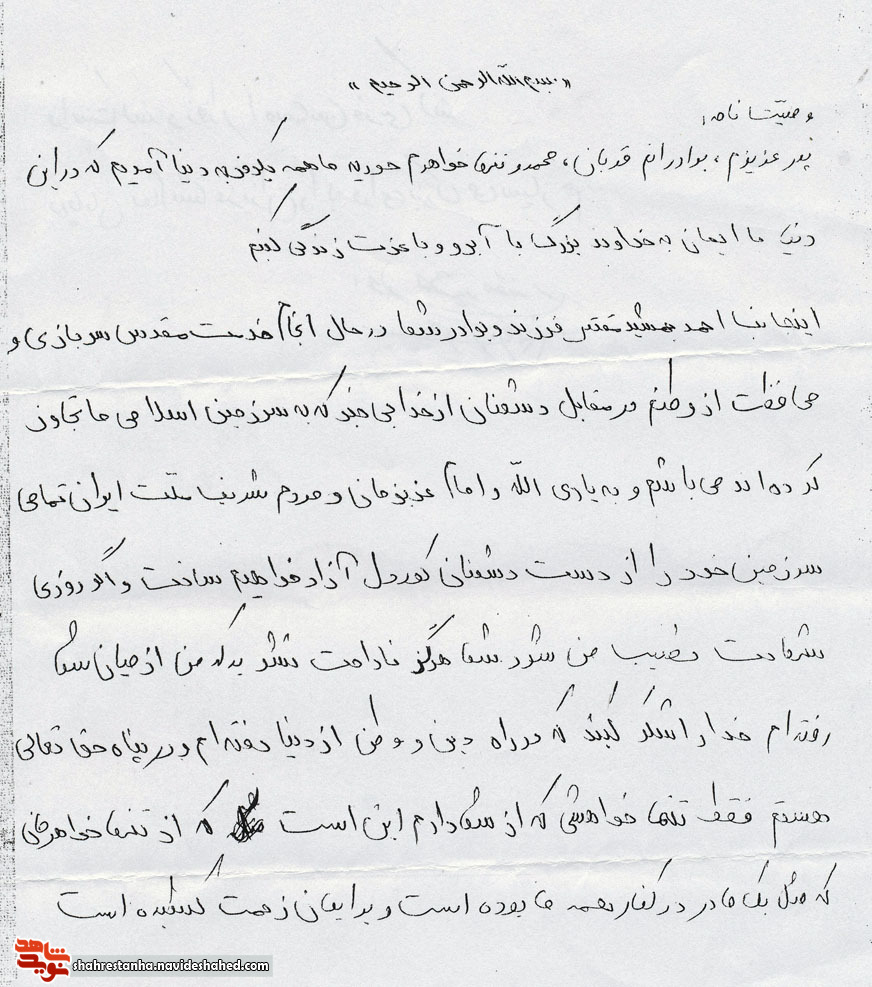 «بسم الله الرحمن الرحیم»
وصیت نامه:
پدر عزیزم، برادرانم قربان، محمد و تنها خواهرم حوریه ما همه یکروزی به دنیا آمدیم که در این
دنیا با ایمان به خداوند بزرگ با آبرو و با عزت زندگی کنیم
اینجانب احمد جمشید فرزند و برادر شما در حال انجام خدمت مقدس سربازی و
محافظت از وطنم در مقابل دشمنان از خدا بی خبر که به سرزمین اسلامی ما تجاوز
کرده اند می باشم و به یاری الله و امام عزیزمان و مردم شریف ملت ایران تمامی
سرزمین خود را از دست دشمنان کوردل آزاد خواهیم ساخت و اگر روزی
شهادت نصیب من شود شما هرگز ناراحت نشوید که من از میان شما
رفته ام خدا را شکر کنید که در راه دین و وطن از دنیا رفته ام و در پناه حق تعالی
هستم فقط تنها خواهشی که از شما دارم این است که از تنها خواهرمان
که مثل یک مادر در کنار همه ما بوده است و برایمان زحمت کشیده است
شاهد
نوید
shahrestanha.navideshahed.com